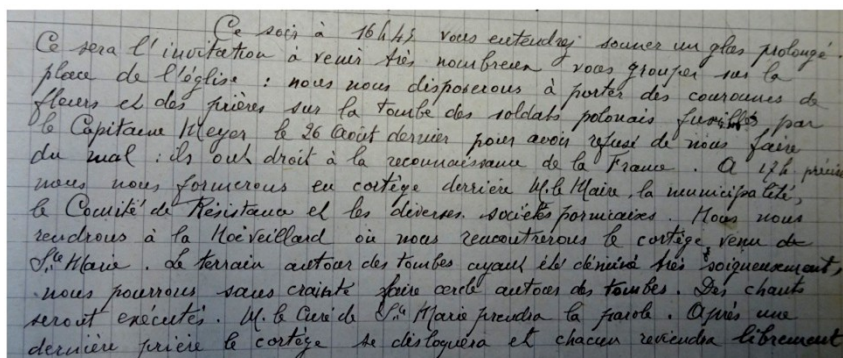 Ce soir à 16h45 vous entendrez sonner un glas prolongé.
Ce sera l'invitation à venir très nombreux vous grouper sur la
place de l'église : nous nous disposerons à porter des couronnes de
fleurs et des prières sur la tombe des soldats polonais fusillés par
le Capitaine Meyer le 26 Août dernier pour avoir refusé de nous faire
du mal : ils ont droit à la reconnaissance de la France. A 17h précises
nous nous formerons en cortège derrière M. le Maire, la municipalité,
le Comité de Résistance et les diverses sociétés pornicaises. Nous nous
rendrons à la Noëveillard où nous rencontrerons le cortège venu de
Ste Marie. Le terrain autour des tombes ayant été déminé très soigneusement,
nous pourrons sans crainte faire cercle autour des tombes. Des chants
seront exécutés. M. le Curé de Ste Marie prendra la parole. Après une
dernière prière le cortège se disloquera et chacun reviendra librement